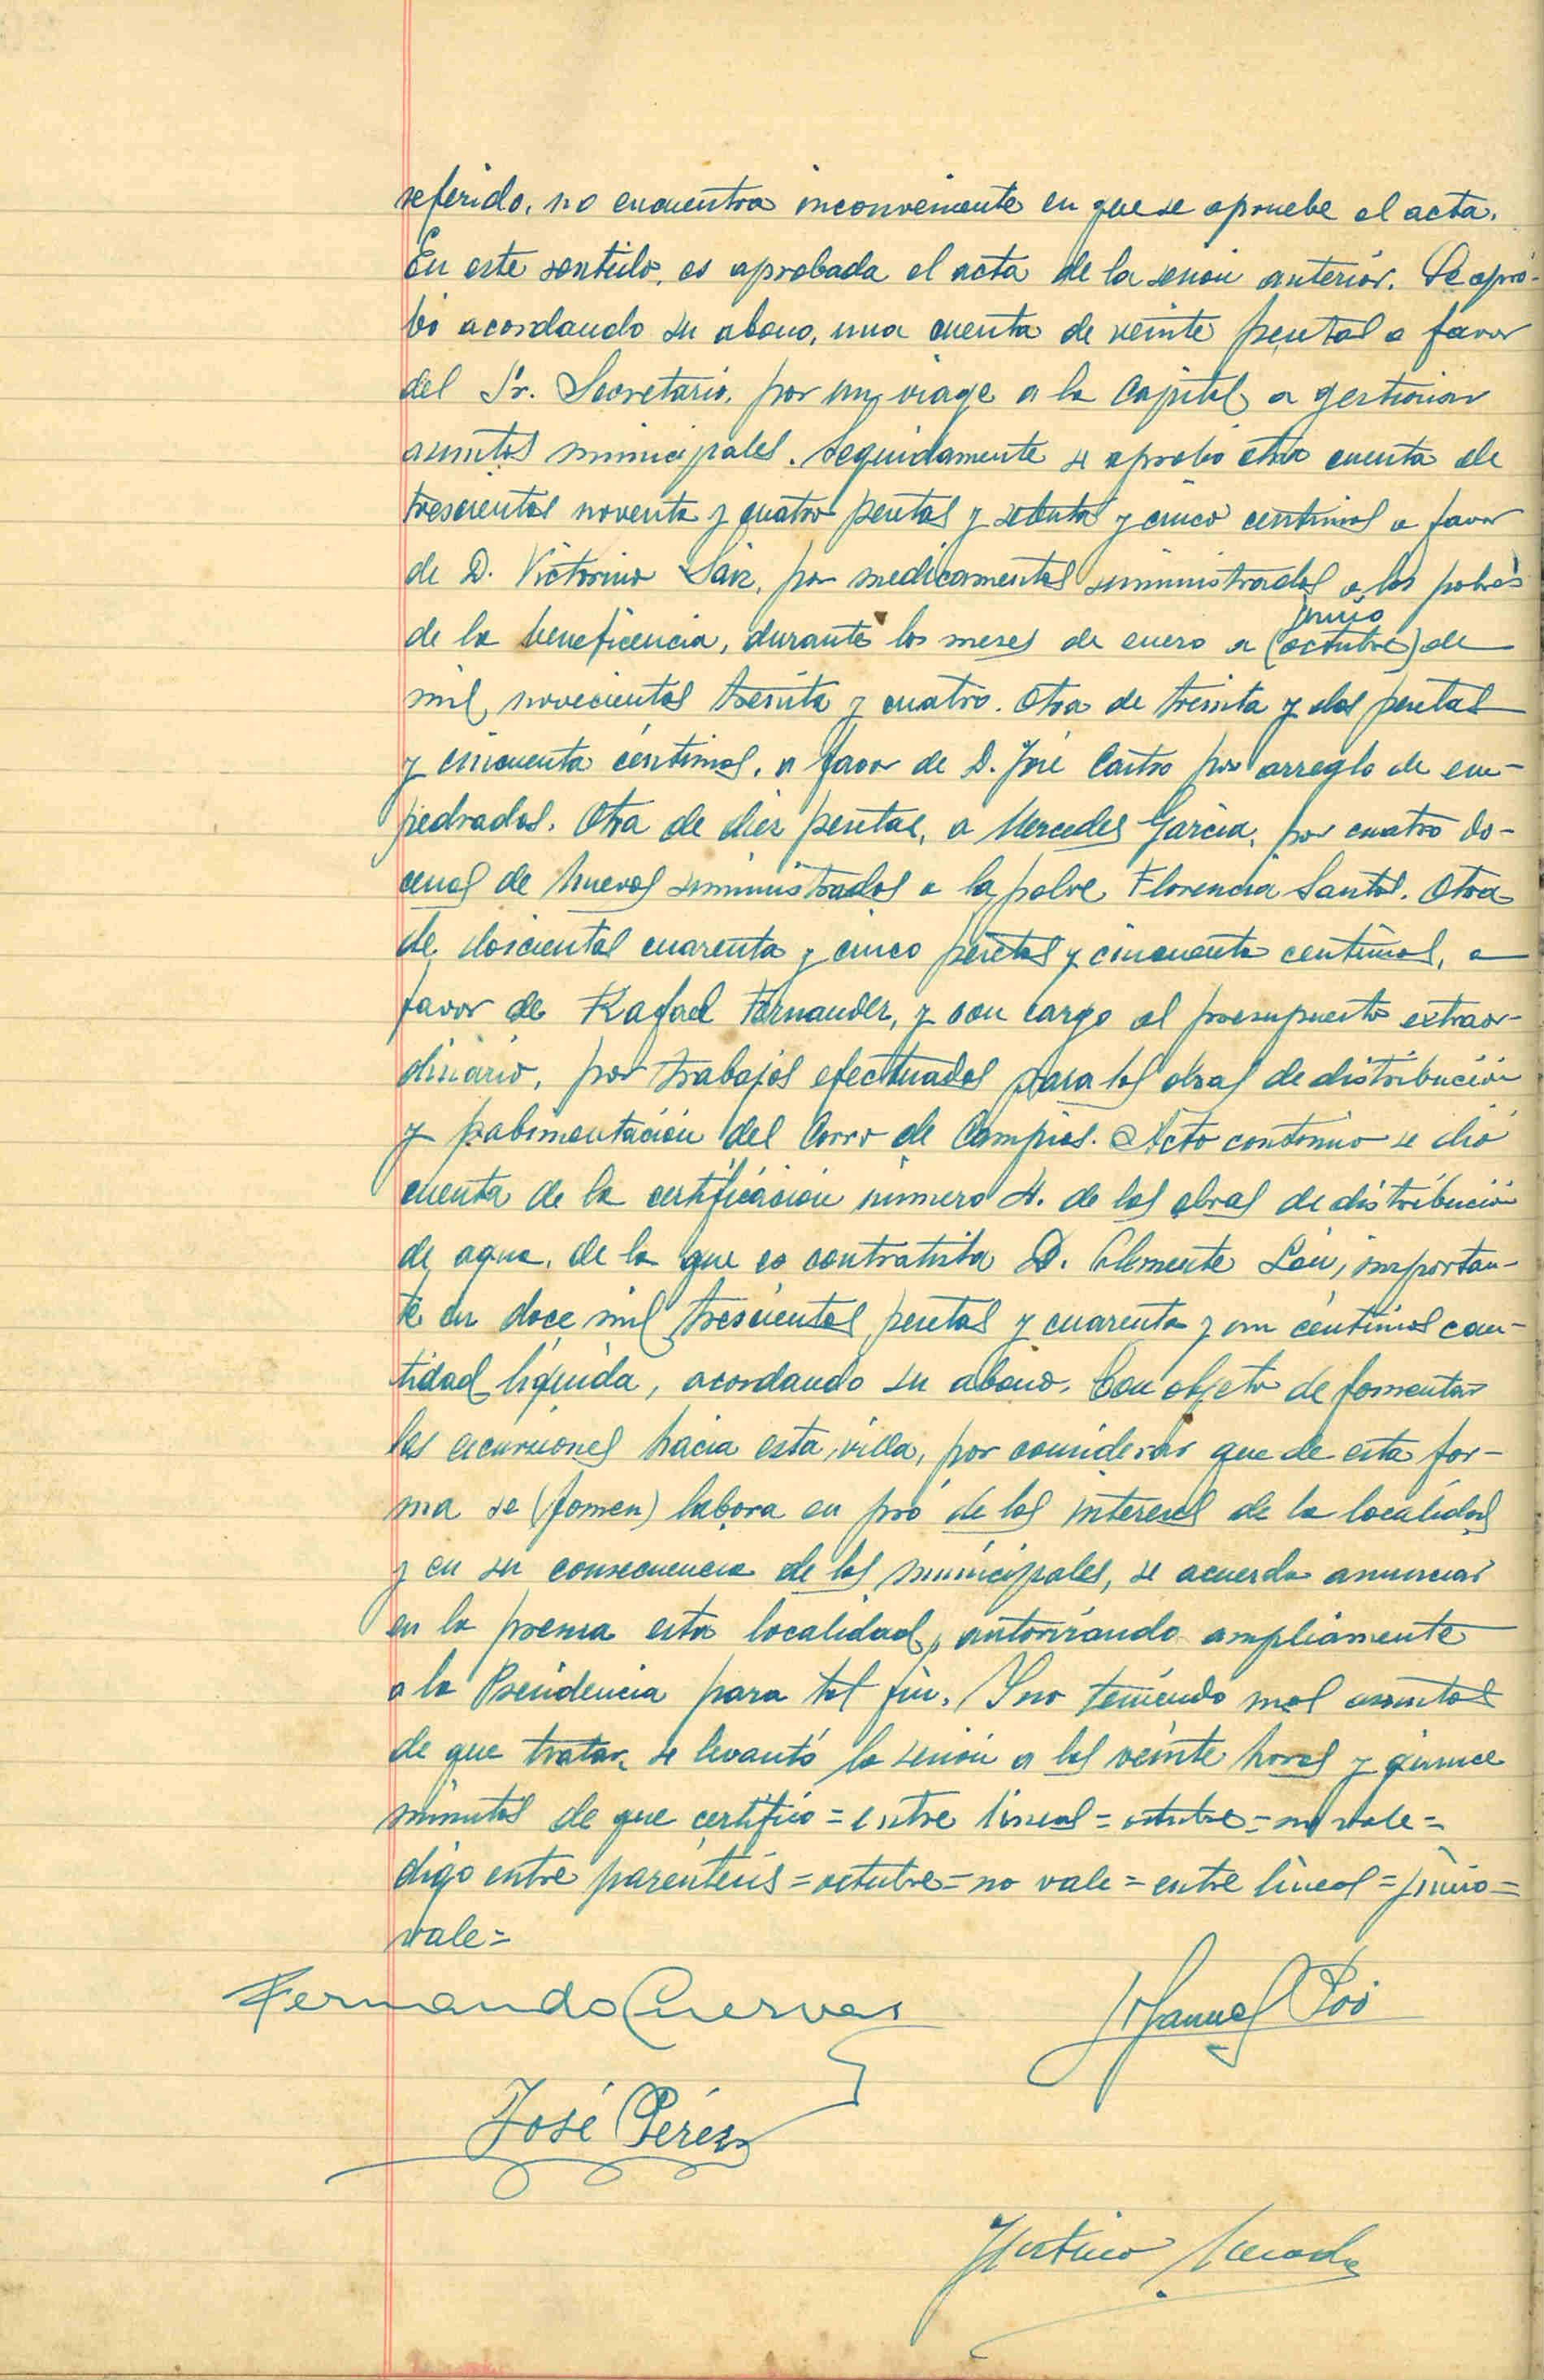 referido, no encuentra inconveniente en que se apruebe el acta.
En este sentido, es aprobada el acta de la sesión anterior. Se apro-
bó acordando su abono, una cuenta de veinte pesetas a favor
del Sr. Secretario, por un viage a la Capital a gestionar
asuntos municipales. Seguidamente se aprobó otra cuenta de
trescientas noventa y cuatro pesetas y setenta y cinco centimos a favor
de D. Victorino Sáiz, por medicamentos suministrados a los pobres
junio
de la beneficencia, durante los meses de enero a (octubre) de
mil novecientos treinta y cuatro. Otra de treinta y dos pesetas
y cincuenta céntimos, a favor de D. José Castro por arreglo de em-
piedrados. Otra de diez pesetas, a Mercedes García, por cuatro do-
cenas de huevos suministrados a la pobre Florencia Santos. Otra
de doscientas cuarenta y cinco pesetas y cincuenta centimos, a
favor de Rafael Fernandez, y con cargo al presupuesto extraor-
dinario, por trabajos efectuados para las obras de distribución
y pabimentación del Corro de Campios. Acto continuo se dió
cuenta de la certificación número 4. de las obras de distribución
de agua, de la que es contratista D. Clemente , importan-
te en doce mil trescientas pesetas y cuarenta y un céntimos can-
tidad líquida, acordando su abono. Con objeto de fomentar
las excursiones hacia esta villa, por considerar que de esta for-
ma se (fomen) labora en pró de los intereses de la localidad
y en su consecuencia de los municipales, se acuerda anunciar
en la prensa esta localidad, autorizando ampliamente
a la Presidencia para tal fin. Y no teniendo mas asuntos
de que tratar, se levantó la sesión a las veinte horas y quince
minutos de que certifico = entre lineas = octubre = no vale =
digo entre paréntesis = octubre = no vale = entre líneas = junio =
vale =
Fernando Cuervas
Manuel
José Pérez